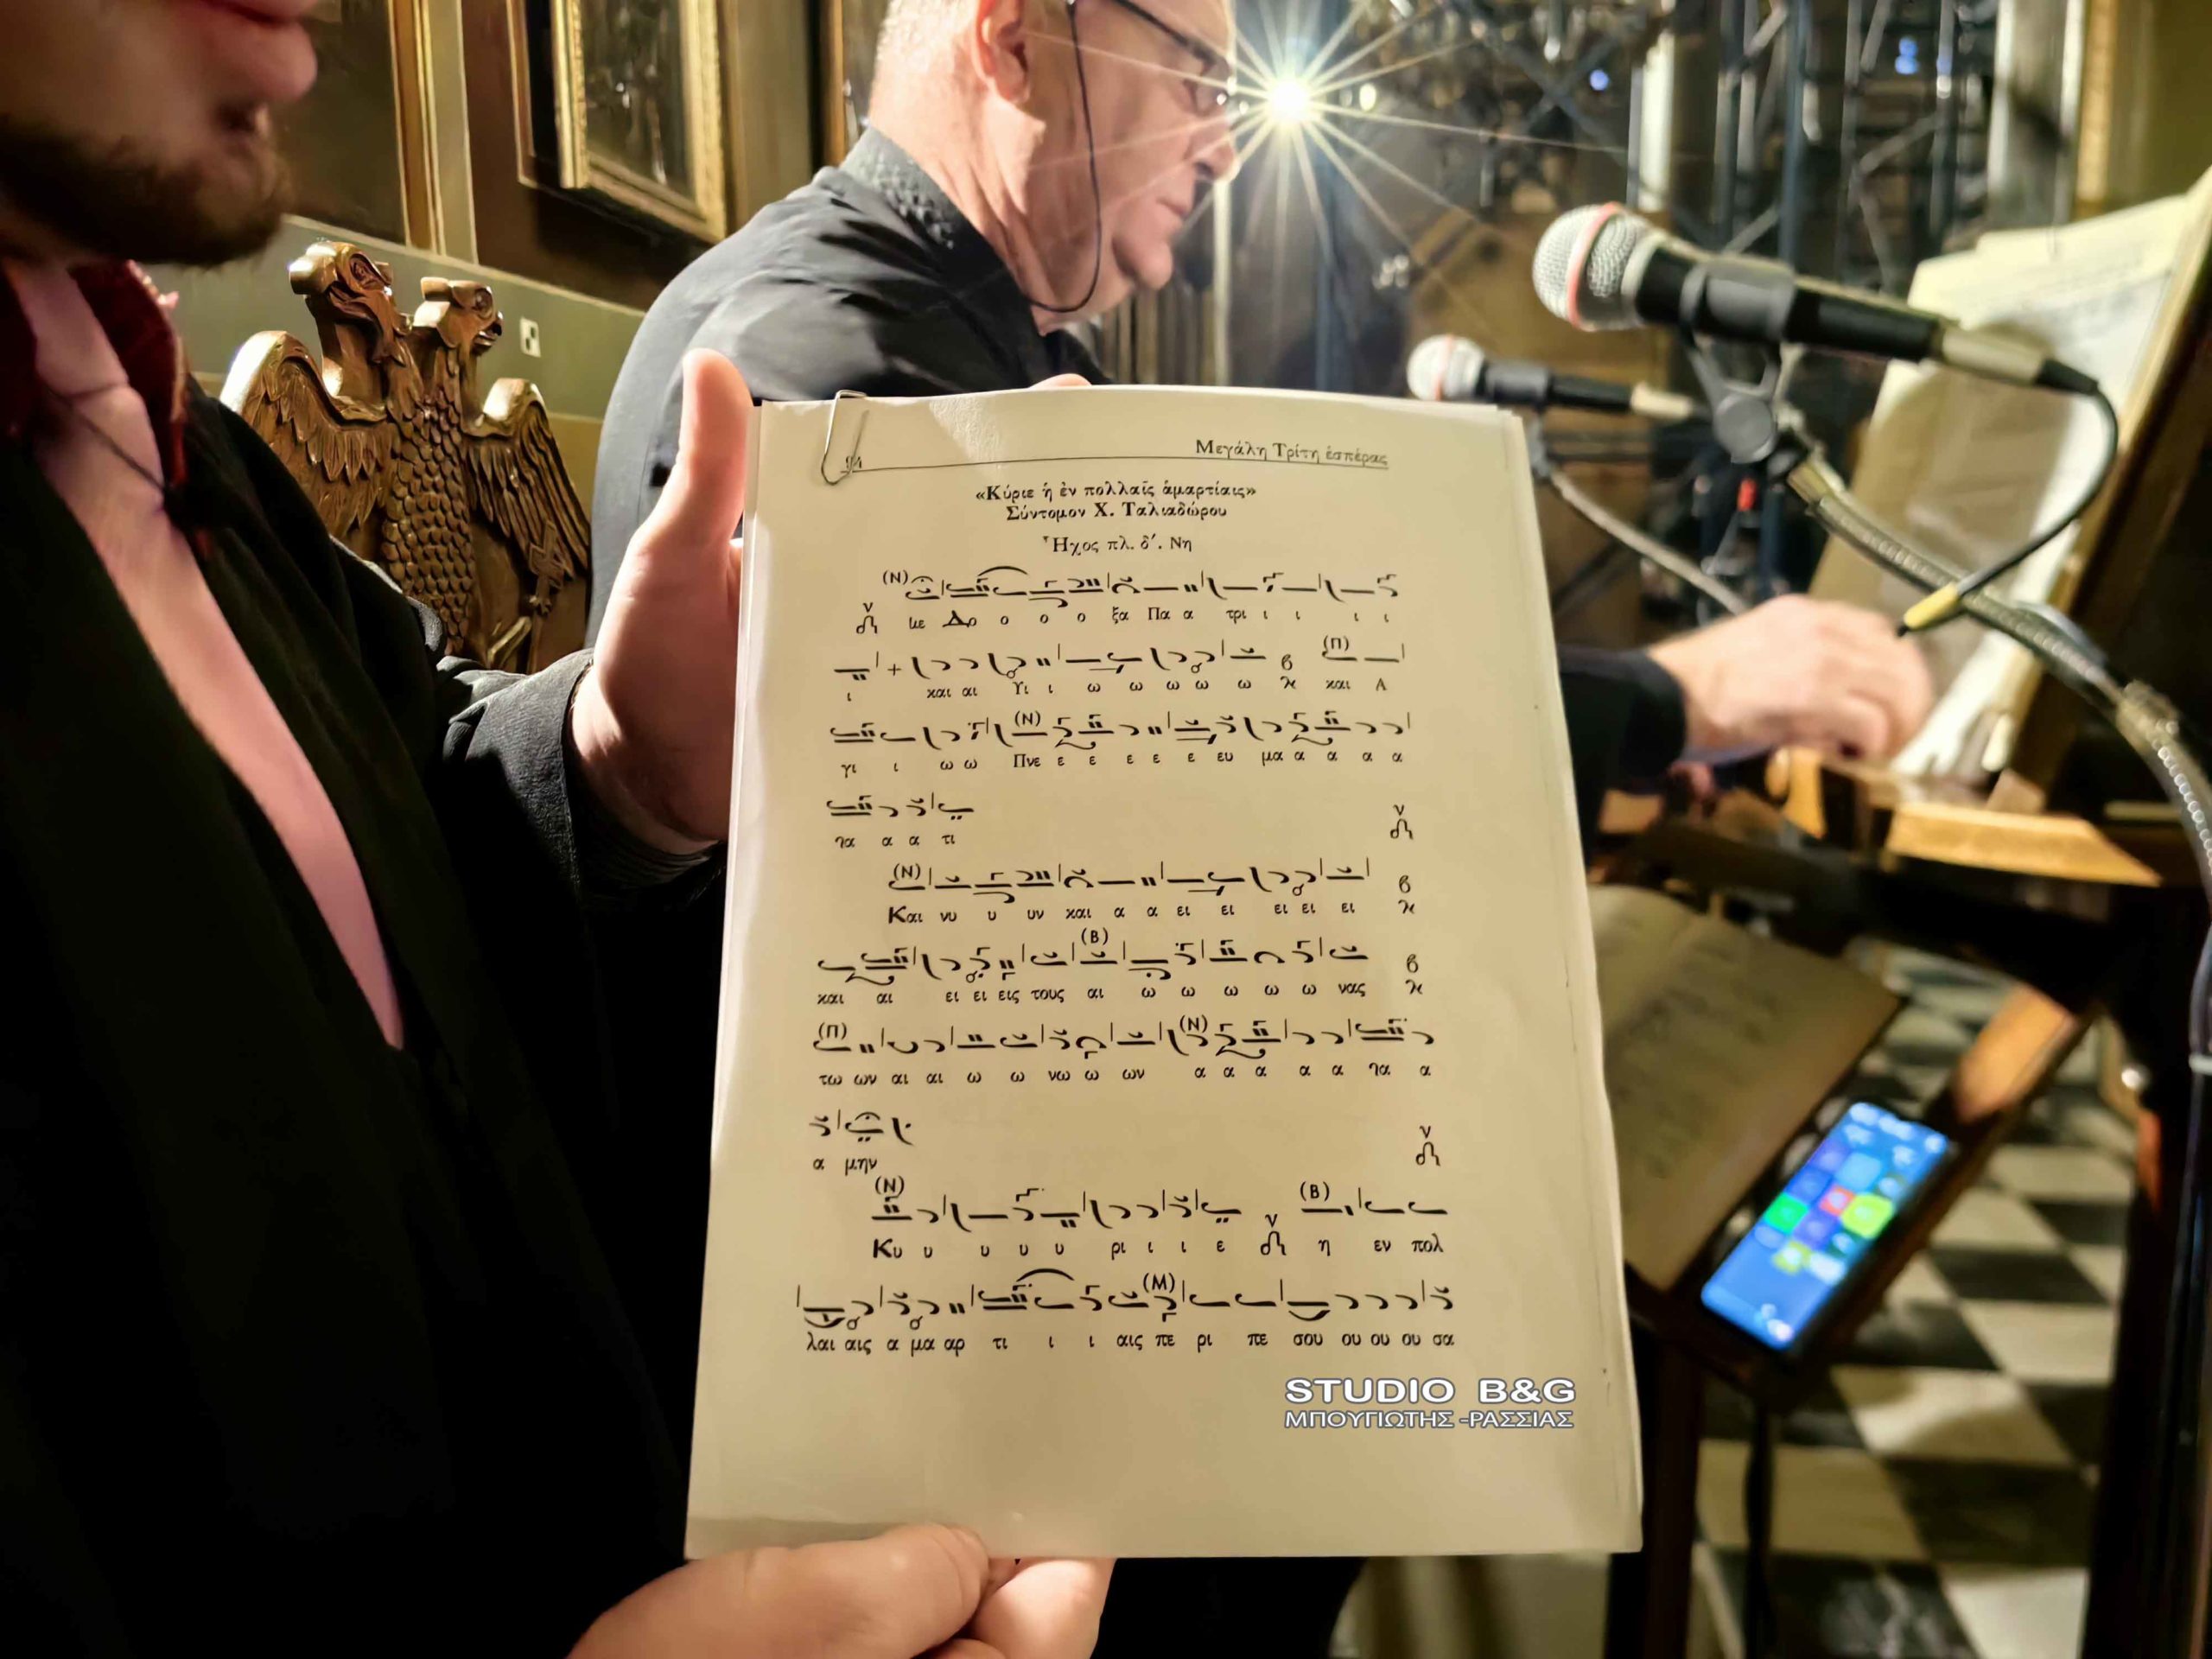 94 Μεγάλη Τρίτη ἑσπέρας
«Κύριε ἡ ἐν πολλαῖς ἁμαρτίαις»
Σύντομον Χ. Ταλιαδώρου
Ἦχος πλ. δ΄. Νη
(Ν)
Δο ο ο ο ξα Πα α τρι ι ι ι ι
(Π)
ι και αι Υι ι ω ω ω ω ω και Α
(Ν)
γι ι ω ω Πνε ε ε ε ε ε ευ μα α α α α
α α τι
(Ν)
Και νυ υ υν και α α ει ει ει ει ει
(Β)
και αι ει ει εις τους αι ω ω ω ω ω νας
(Π) (Ν)
τω ων αι αι ω ω νω ω ων α α α α α α
α μην
(Ν) (Β)
Κυ υ υ υ υ ρι ι ι ε η εν πολ
(Μ)
λαι αις α μα αρ τι ι ι αις πε ρι πε σου ου ου ου σα
STUDIO B&G
ΜΠΟΥΓΙΩΤΗΣ -ΡΑΣΣΙΑΣ